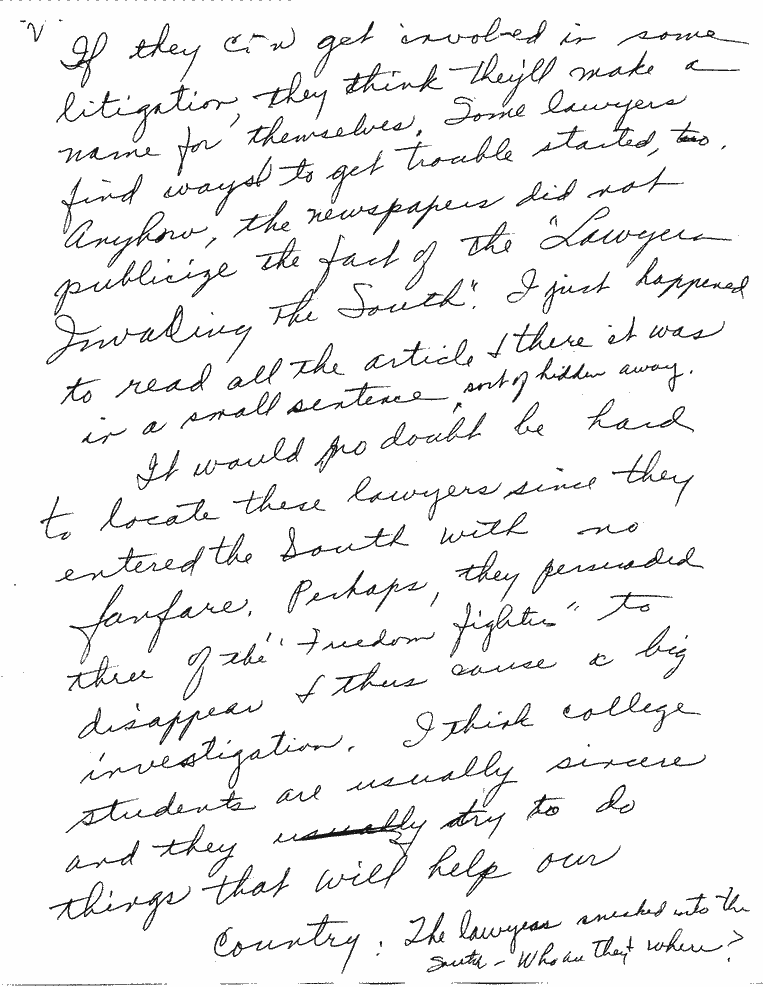 If they can get involved in some
litigation, they think they'll make a
name for themselves. Some lawyers
find ways to get trouble started, too.
Anyhow, the newspapers did not
publicize the fact of the "Lawyers
Invading the South". I just happened
to read all the article & there it was
in a small sentence, sort of hidden away.
It would no doubt be hard
to locate these lawyers since they
entered the South with no
fanfare. Perhaps, they persuaded
three of the "Freedom fighters" to
disappear & thus cause a big
investigation. I think college
students are usually sincere
and they usually try to do
things that will help our
Country. The lawyers sneaked into the
South - Who are they & where?